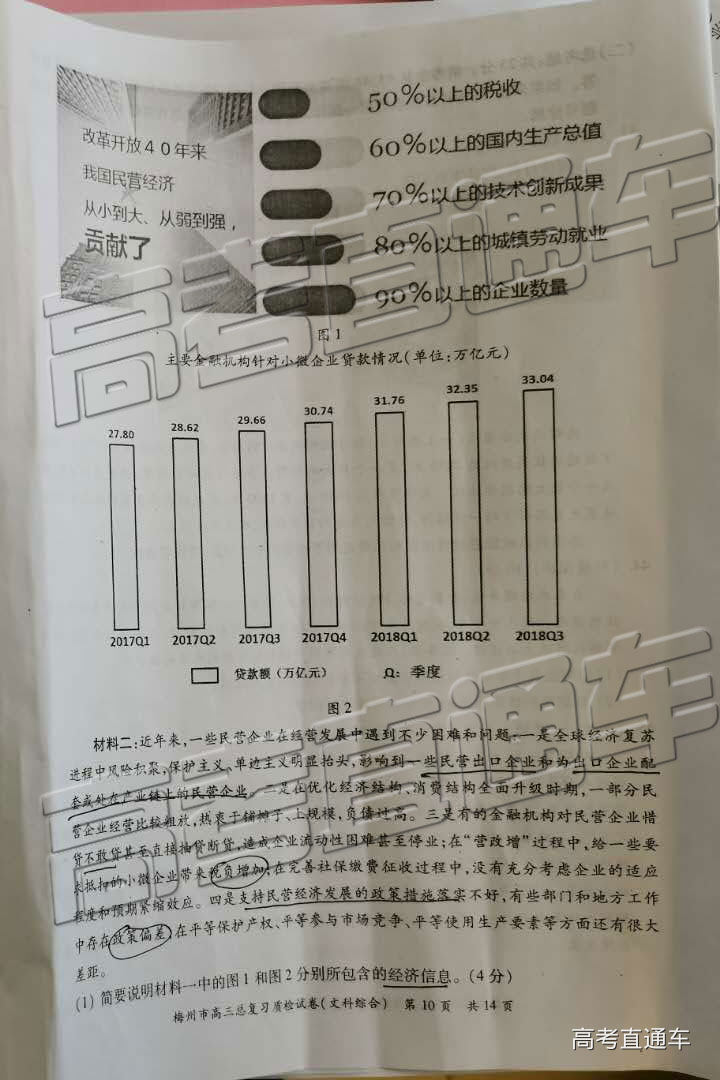 改革开放40年来
我国民营经济
从小到大、从弱到强，
贡献了
50%以上的税收
60%以上的国内生产总值
70%以上的技术创新成果
80%以上的城镇劳动就业
90%以上的企业数量
图1
主要金融机构针对小微企业贷款情况(单位:万亿元)
27.80 28.62 29.66 30.74 31.76 32.35 33.04
2017Q1 2017Q2 2017Q3 2017Q4 2018Q1 2018Q2 2018Q3
贷款额（万亿元） Q：季度
图2
材料二:近年来,一些民营企业在经营发展中遇到不少困难和问题:一是全球经济复苏
进程中风险积聚,保护主义、单边主义明显抬头,影响到一些民营出口企业和为出口企业配
套或处在产业链上的民营企业。二是在优化经济结构、消费结构全面升级时期,一部分民
营企业经营比较粗放,热衷于铺摊子、上规模,负债过高。三是有的金融机构对民营企业惜
贷不敢贷甚至直接抽贷断贷,造成企业流动性困难甚至停业;在“营改增”过程中,给一些要
求抵扣的小微企业带来税负增加;在完善社保缴费征收过程中,没有充分考虑企业的适应
程度和预期紧缩效应。四是支持民营经济发展的政策措施落实不好,有些部门和地方工作
中存在政策偏差,在平等保护产权、平等参与市场竞争、平等使用生产要素等方面还有很大
差距。
(1) 简要说明材料一中的图1和图2分别所包含的经济信息。(4分)
梅州市高三总复习质检试卷(文科综合) 第10页 共14页
高考直通车
高考直通车
高考直通车